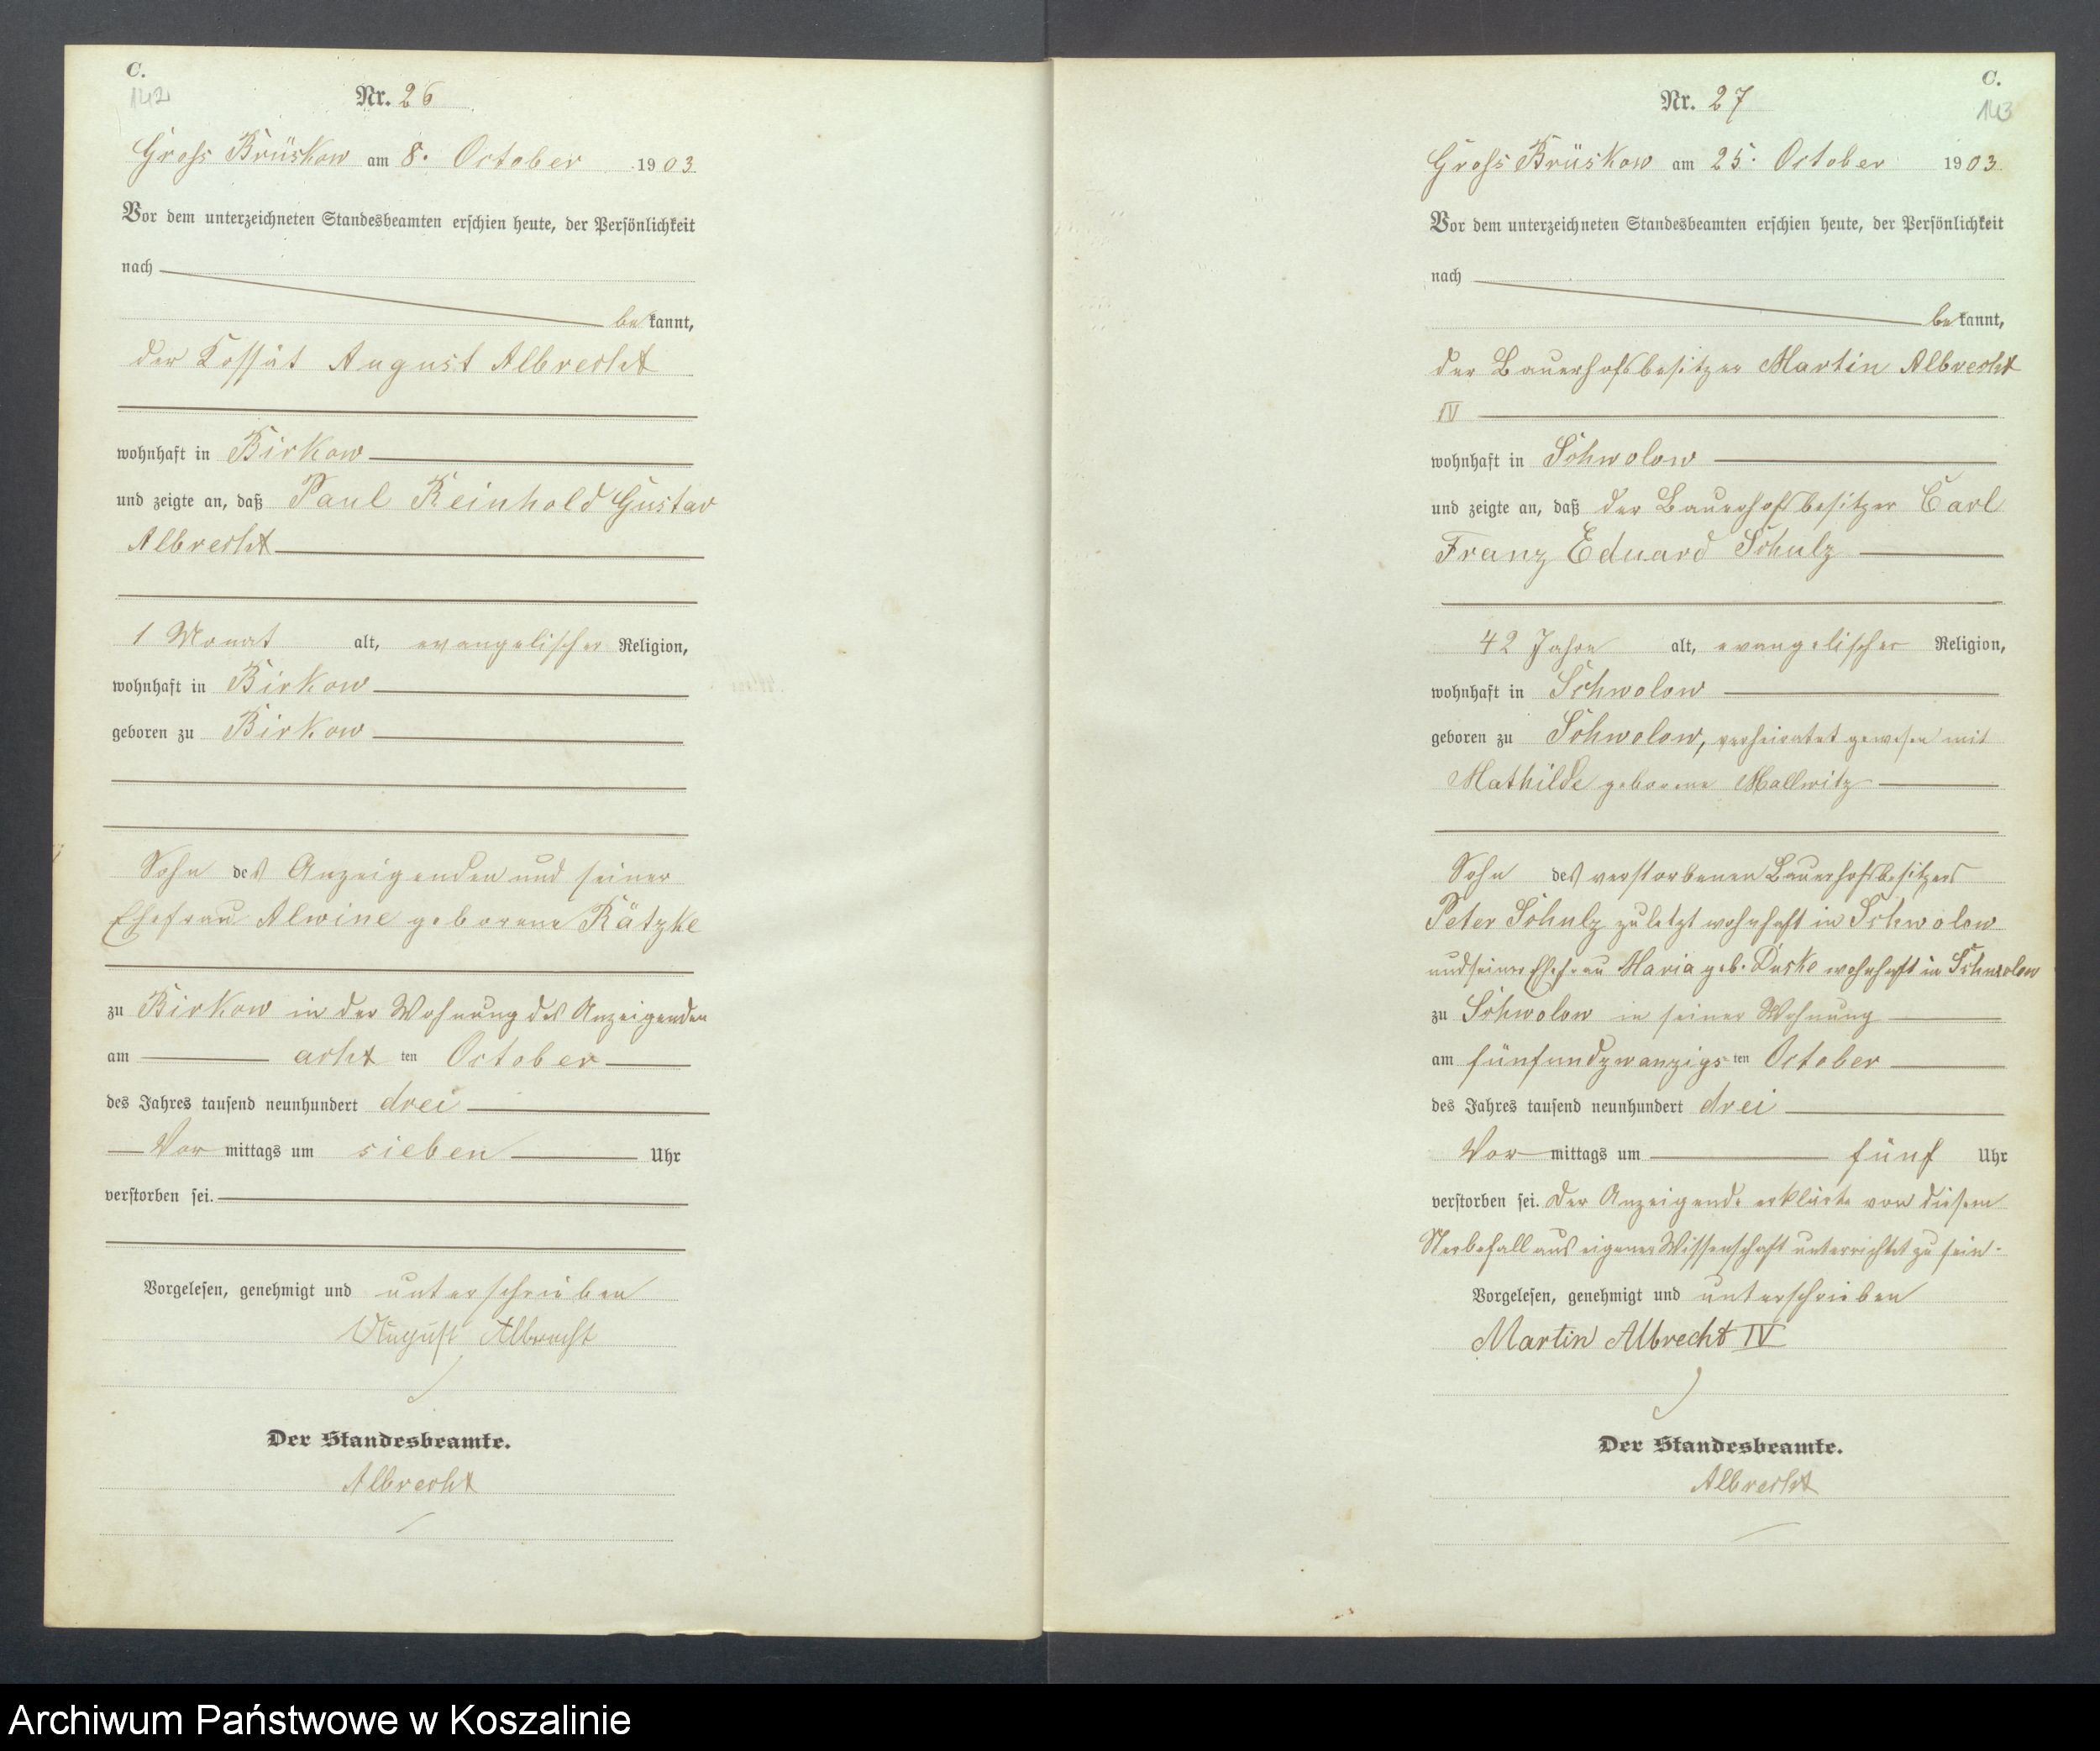 C.
142
Nr. 26
Gross Brüskow am 8. October 1903
Vor dem unterzeichneten Standesbeamten erschien heute, der Persönlichkeit
nach
bekannt,
der Kossät August Albrecht
wohnhaft in Birkow
und zeigte an, daß Paul Reinhold Gustav
Albrecht
1 Monat alt, evangelischer Religion,
wohnhaft in Birkow
geboren zu Birkow
Sohn des Anzeigenden und seiner
Ehefrau Alwine geborene Rätzke
zu Birkow in der Wohnung des Anzeigenden
am achtten October
des Jahres tausend neunhundert drei
Vormittags um sieben Uhr
verstorben sei.
Vorgelesen, genehmigt und unterschrieben
August Albrecht
Der Standesbeamte.
Albrecht
C.
143
Nr. 27
Gross Brüskow am 25. October 1903
Vor dem unterzeichneten Standesbeamten erschien heute, der Persönlichkeit
nach
bekannt,
der Bauerhofsbesitzer Martin Albrecht
IV
wohnhaft in Schwolow
und zeigte an, daß der Bauerhofsbesitzer Carl
Franz Eduard Schulz
42 Jahre alt, evangelischer Religion,
wohnhaft in Schwolow
geboren zu Schwolow, verheiratet gewesen mit
Mathilde geborene Mallwitz
Sohn des verstorbenen Bauerhofsbesitzers
Peter Schulz zuletzt wohnhaft in Schwolow
und seiner Ehefrau Maria geb. Duske wohnhaft in Schwolow
zu Schwolow in seiner Wohnung
am fünfundzwanzigsten October
des Jahres tausend neunhundert drei
Vormittags um fünf Uhr
verstorben sei. Der Anzeigende erklärte von diesem
Sterbefall aus eigener Wissenschaft unterrichtet zu sein.
Vorgelesen, genehmigt und unterschrieben
Martin Albrecht IV
Der Standesbeamte.
Albrecht
Archiwum Państwowe w Koszalinie